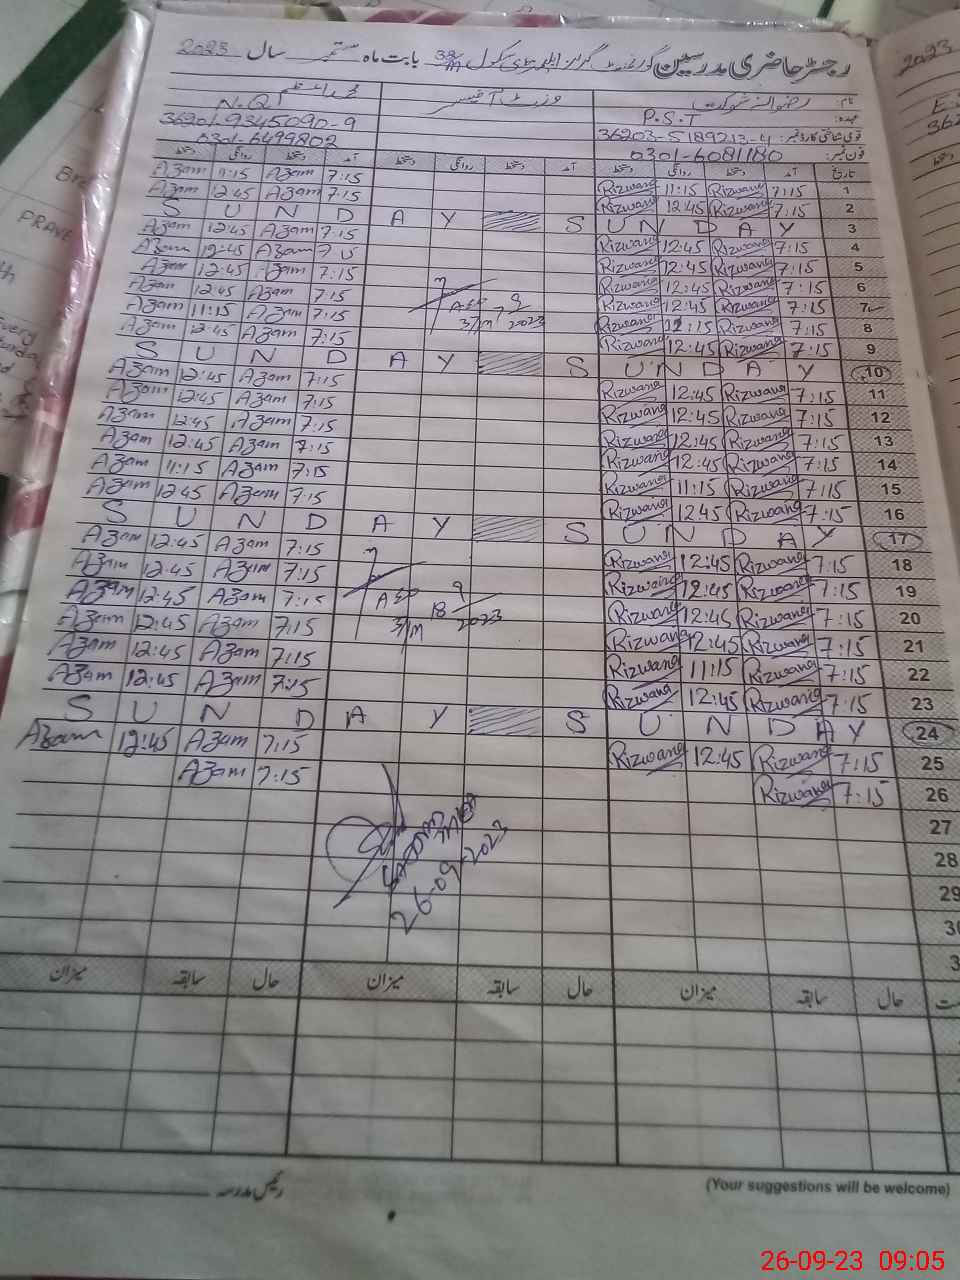 رجسٹر حاضری مدرسین گورنمنٹ گرلز ایلیمنٹری سکول 38/M بابت ماہ ستمبر سال 2023
نام: رضوانہ شوکت وزٹ آفیسر محمد اعظم
عہدہ: P.S.T N.Q
قومی شناختی کارڈ نمبر: 36203-5189213-4 36201-9345090-9
فون نمبر: 0301-6081180 0301-6499802
تاریخ آمد دستخط روانگی دستخط آمد دستخط روانگی دستخط آمد دستخط روانگی دستخط
1 7:15 Rizwana 11:15 Rizwana 7:15 Azam 11:15 Azam
2 7:15 Rizwana 12:45 Rizwana 7:15 Azam 12:45 Azam
3 S U N D A Y S U N D A Y
4 7:15 Rizwana 12:45 Rizwana 7:15 Azam 12:45 Azam
5 7:15 Rizwana 12:45 Rizwana 7:15 Azam 12:45 Azam
6 7:15 Rizwana 12:45 Rizwana 7:15 Azam 12:45 Azam
7 7:15 Rizwana 12:45 Rizwana 7:15 Azam 12:45 Azam
8 7:15 Rizwana 11:15 Rizwana 7:15 Azam 11:15 Azam
9 7:15 Rizwana 12:45 Rizwana 7:15 Azam 12:45 Azam
37/M 7 9 2023
10 S U N D A Y S U N D A Y
11 7:15 Rizwana 12:45 Rizwana 7:15 Azam 12:45 Azam
12 7:15 Rizwana 12:45 Rizwana 7:15 Azam 12:45 Azam
13 7:15 Rizwana 12:45 Rizwana 7:15 Azam 12:45 Azam
14 7:15 Rizwana 12:45 Rizwana 7:15 Azam 12:45 Azam
15 7:15 Rizwana 11:15 Rizwana 7:15 Azam 11:15 Azam
16 7:15 Rizwana 12:45 Rizwana 7:15 Azam 12:45 Azam
17 S U N D A Y S U N D A Y
18 7:15 Rizwana 12:45 Rizwana 7:15 Azam 12:45 Azam
19 7:15 Rizwana 12:45 Rizwana 7:15 Azam 12:45 Azam
20 7:15 Rizwana 12:45 Rizwana 7:15 Azam 12:45 Azam
37/M 18 9 2023
21 7:15 Rizwana 12:45 Rizwana 7:15 Azam 12:45 Azam
22 7:15 Rizwana 11:15 Rizwana 7:15 Azam 12:45 Azam
23 7:15 Rizwana 12:45 Rizwana 7:15 Azam 12:45 Azam
24 S U N D A Y S U N D A Y
25 7:15 Rizwana 12:45 Rizwana 7:15 Azam 12:45 Azam
26 7:15 Rizwana 7:15 Azam
27
28
29
26-09-2023
حال سابقہ میزان حال سابقہ میزان حال سابقہ میزان
رئیس مدرسہ
(Your suggestions will be welcome)
26-09-23 09:05